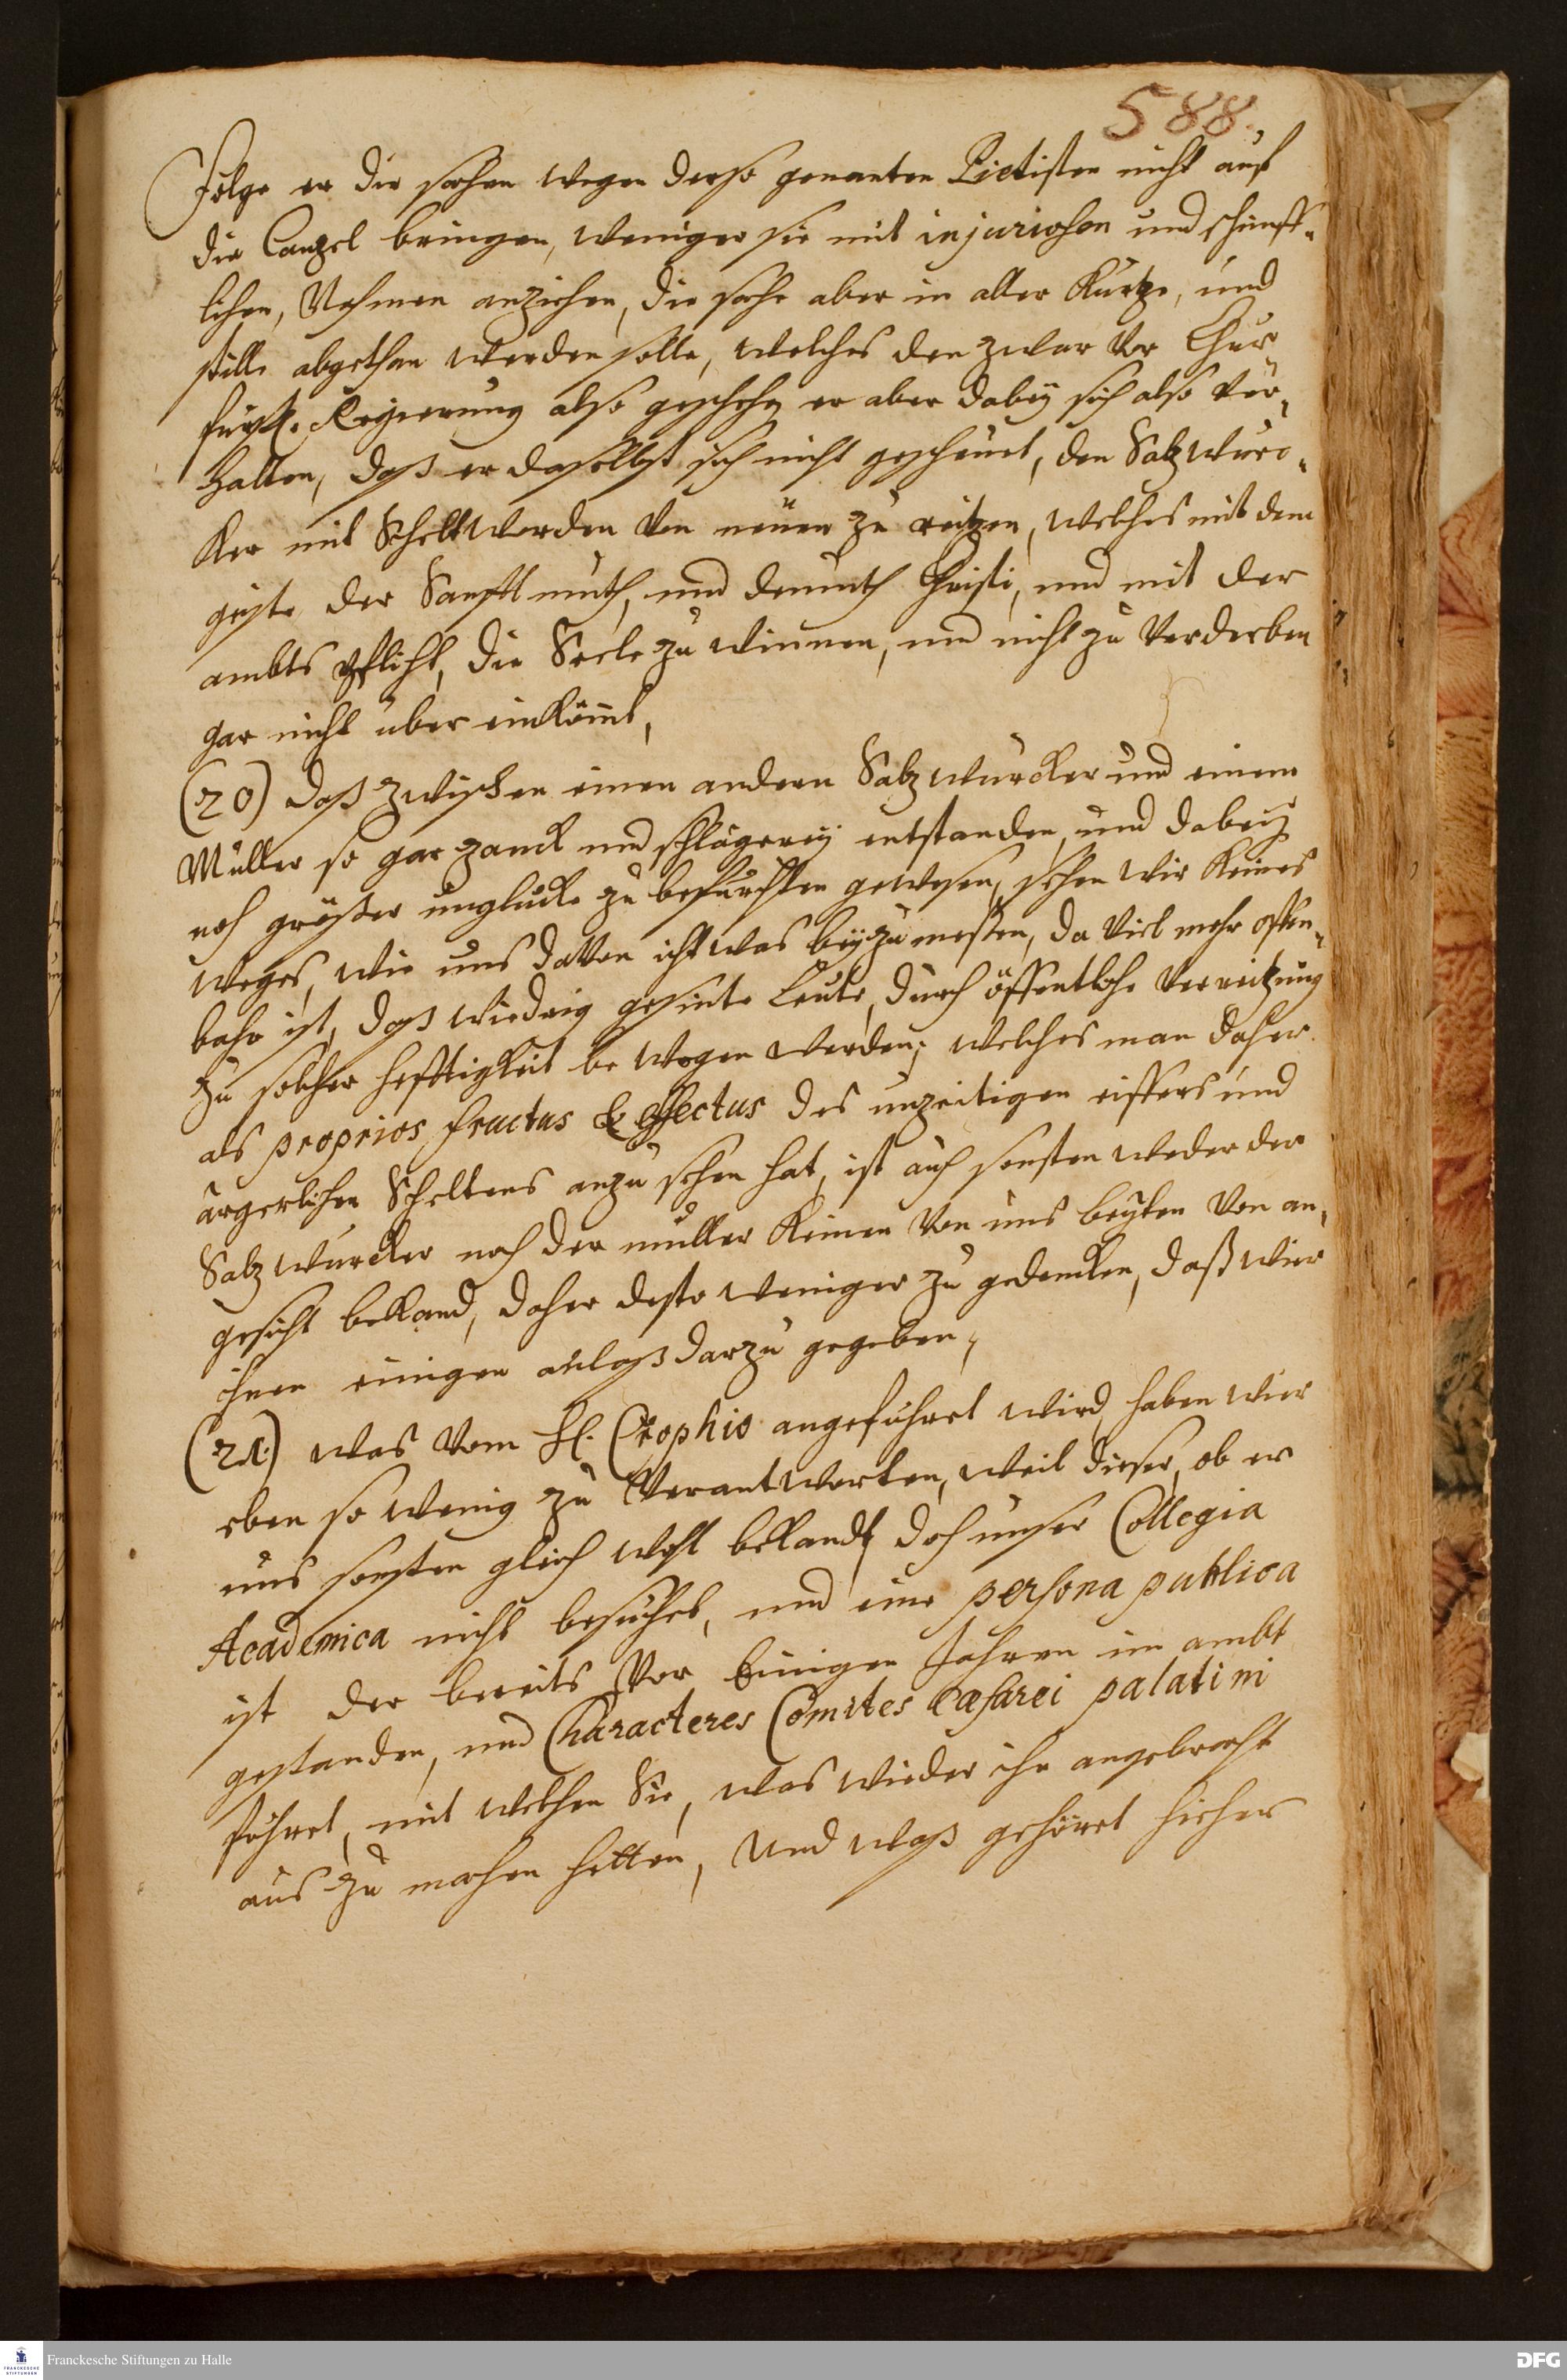 588.
Folge er die sachen wegen derso genanten Pietisten nicht auf
die Canzel bringen, weniger sie mit injuriosen und schimpff-
lichen, Nahmen anziehen, die sache aber in aller Kürtze, und
stille abgethan werden solle, welches den zwar vor Chur-
fürstl. Regierung also geschehen er aber dabey sich also ver-
halten, daß er daselbst sich nicht gescheuet, den Saltzwürc-
ker mit Scheltworden von neuen zu reitzen, welches mit dem
geiste der Sanfftmuth, und demuth Christi, und mit der
ambts Pflicht, die Seele zu winnen, und nicht zu verderben
gar nicht über einkömt,
(20) daß zwischen einen andern Saltzwürcker und einem
Müller so gar zanck und schlägerey entstanden, und dabey
noch größer unglücke zu befürchten gewesen, sehen wir keines
weges, wie uns davon ichtwas beyzumessen, da viel mehr offen-
bahr ist, daß wiedrig gesinte Leute, durch öffentliche verreitzung
zu solcher hefftigkeit be wogen werden; welches man daher
als proprios fructus & effectus des unzeitigen eiffers und
ärgerlichen Scheltens anzu sehen hat, ist auch sonsten weder der
Saltzwürcker noch der müller keinen von uns beyden von an-
gesicht bekand, daher desto weniger zu gedencken, daß wier
ihnen einigen anlaß darzu gegeben,
(21.) was vom H. Crophio angeführet wird, haben wier
eben so wenig zu verantworten, weil dieser, ob er
uns sonsten gleich wohl bekandt doch unser Collegia
Academica nicht besuchet, und eine persona publica
ist der bereits vor Einigen Jahren im ambt
gestanden, und Characteres Comites Cæsarei palatini
führet, mit welchen Sie, was wieder ihn angebracht
aus zu machen hetten, und waß gehöret hieher
Franckesche Stiftungen zu Halle
DFG